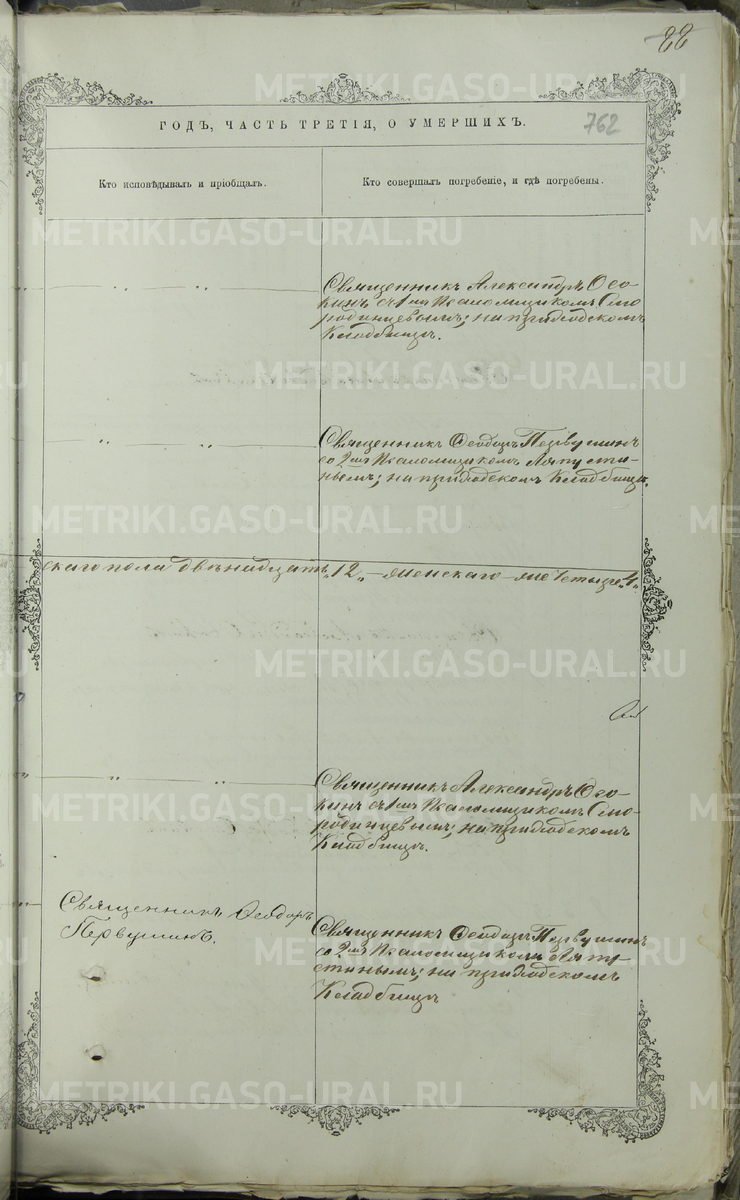 22
ГОДЪ, ЧАСТЬ ТРЕТІЯ, О УМЕРШИХЪ.
762
Кто исповѣдывалъ и пріобщалъ.
Кто совершалъ погребеніе, и гдѣ погребены.
Священникъ Александръ Осо-
кинъ съ 1мъ Псаломщикомъ Смо-
родинцевымъ; на приходскомъ
Кладбищѣ.
Священникъ Ѳеодоръ Первушинъ
со 2мъ Псаломщикомъ Ляпусти-
нымъ; на приходскомъ Кладбищѣ.
скаго пола двѣнадцать „12„ – женскаго – четыре „4„
Священникъ Александръ Осо-
кинъ съ 1мъ Псаломщикомъ Смо-
родинцевымъ; на приходскомъ
Кладбищѣ.
Священникъ Ѳеодоръ
Первушинъ.
Священникъ Ѳеодоръ Первушинъ
со 2мъ Псаломщикомъ Ляпу-
стинымъ; на приходскомъ
Кладбищѣ
METRIKI.GASO-URAL.RU